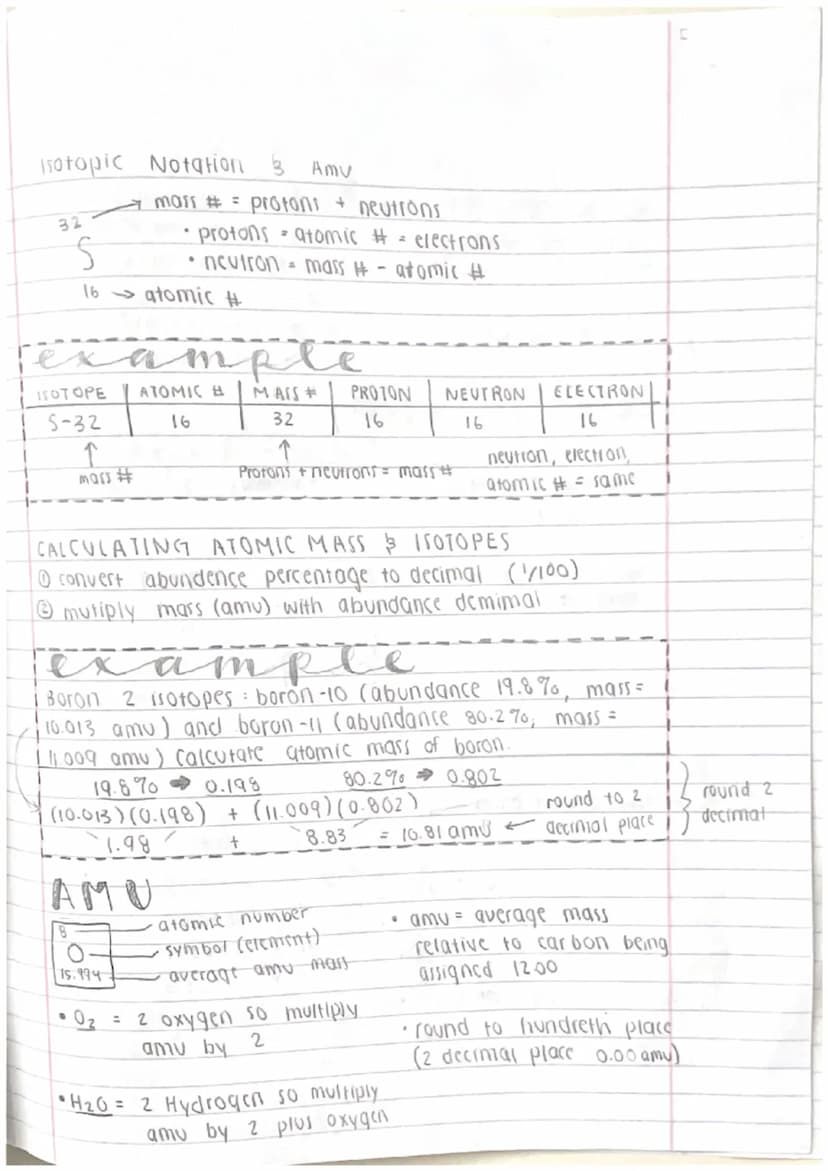 Isotopic Notation & Amu
32 → mass # = protons + neutrons
• protons = atomic # = electrons
S • neutron = mass # - atomic #
16 → atomic #
example
ISOTOPE | ATOMIC # | MASS # | PROTON | NEUTRON | ELECTRON
S-32 | 16 | 32 | 16 | 16 | 16
↑ ↑ neutron, electron,
mass # Protons + neutrons = mass # atomic # = same
CALCULATING ATOMIC MASS & ISOTOPES
① convert abundence percentage to decimal (1/100)
② mutiply mass (amu) with abundance demimal
example
Boron 2 isotopes : boron-10 (abundance 19.8%, mass=
10.013 amu) and boron-11 (abundance 80.2%, mass =
11.009 amu) Calculate atomic mass of boron.
19.8% → 0.198 80.2% → 0.802
(10.013)(0.198) + (11.009)(0.802) round to 2
1.98 + 8.83 = 10.81 amu ← decimal place
round 2
decimal
AMU
8 atomic number
O symbol (element)
15.994 average amu mass
• amu = average mass
relative to carbon being
assigned 12.00
• O2 = 2 oxygen so multiply
amu by 2
• round to hundreth place
(2 decimal place 0.00 amu)
• H2O = 2 Hydrogen so multiply
amu by 2 plus oxygen